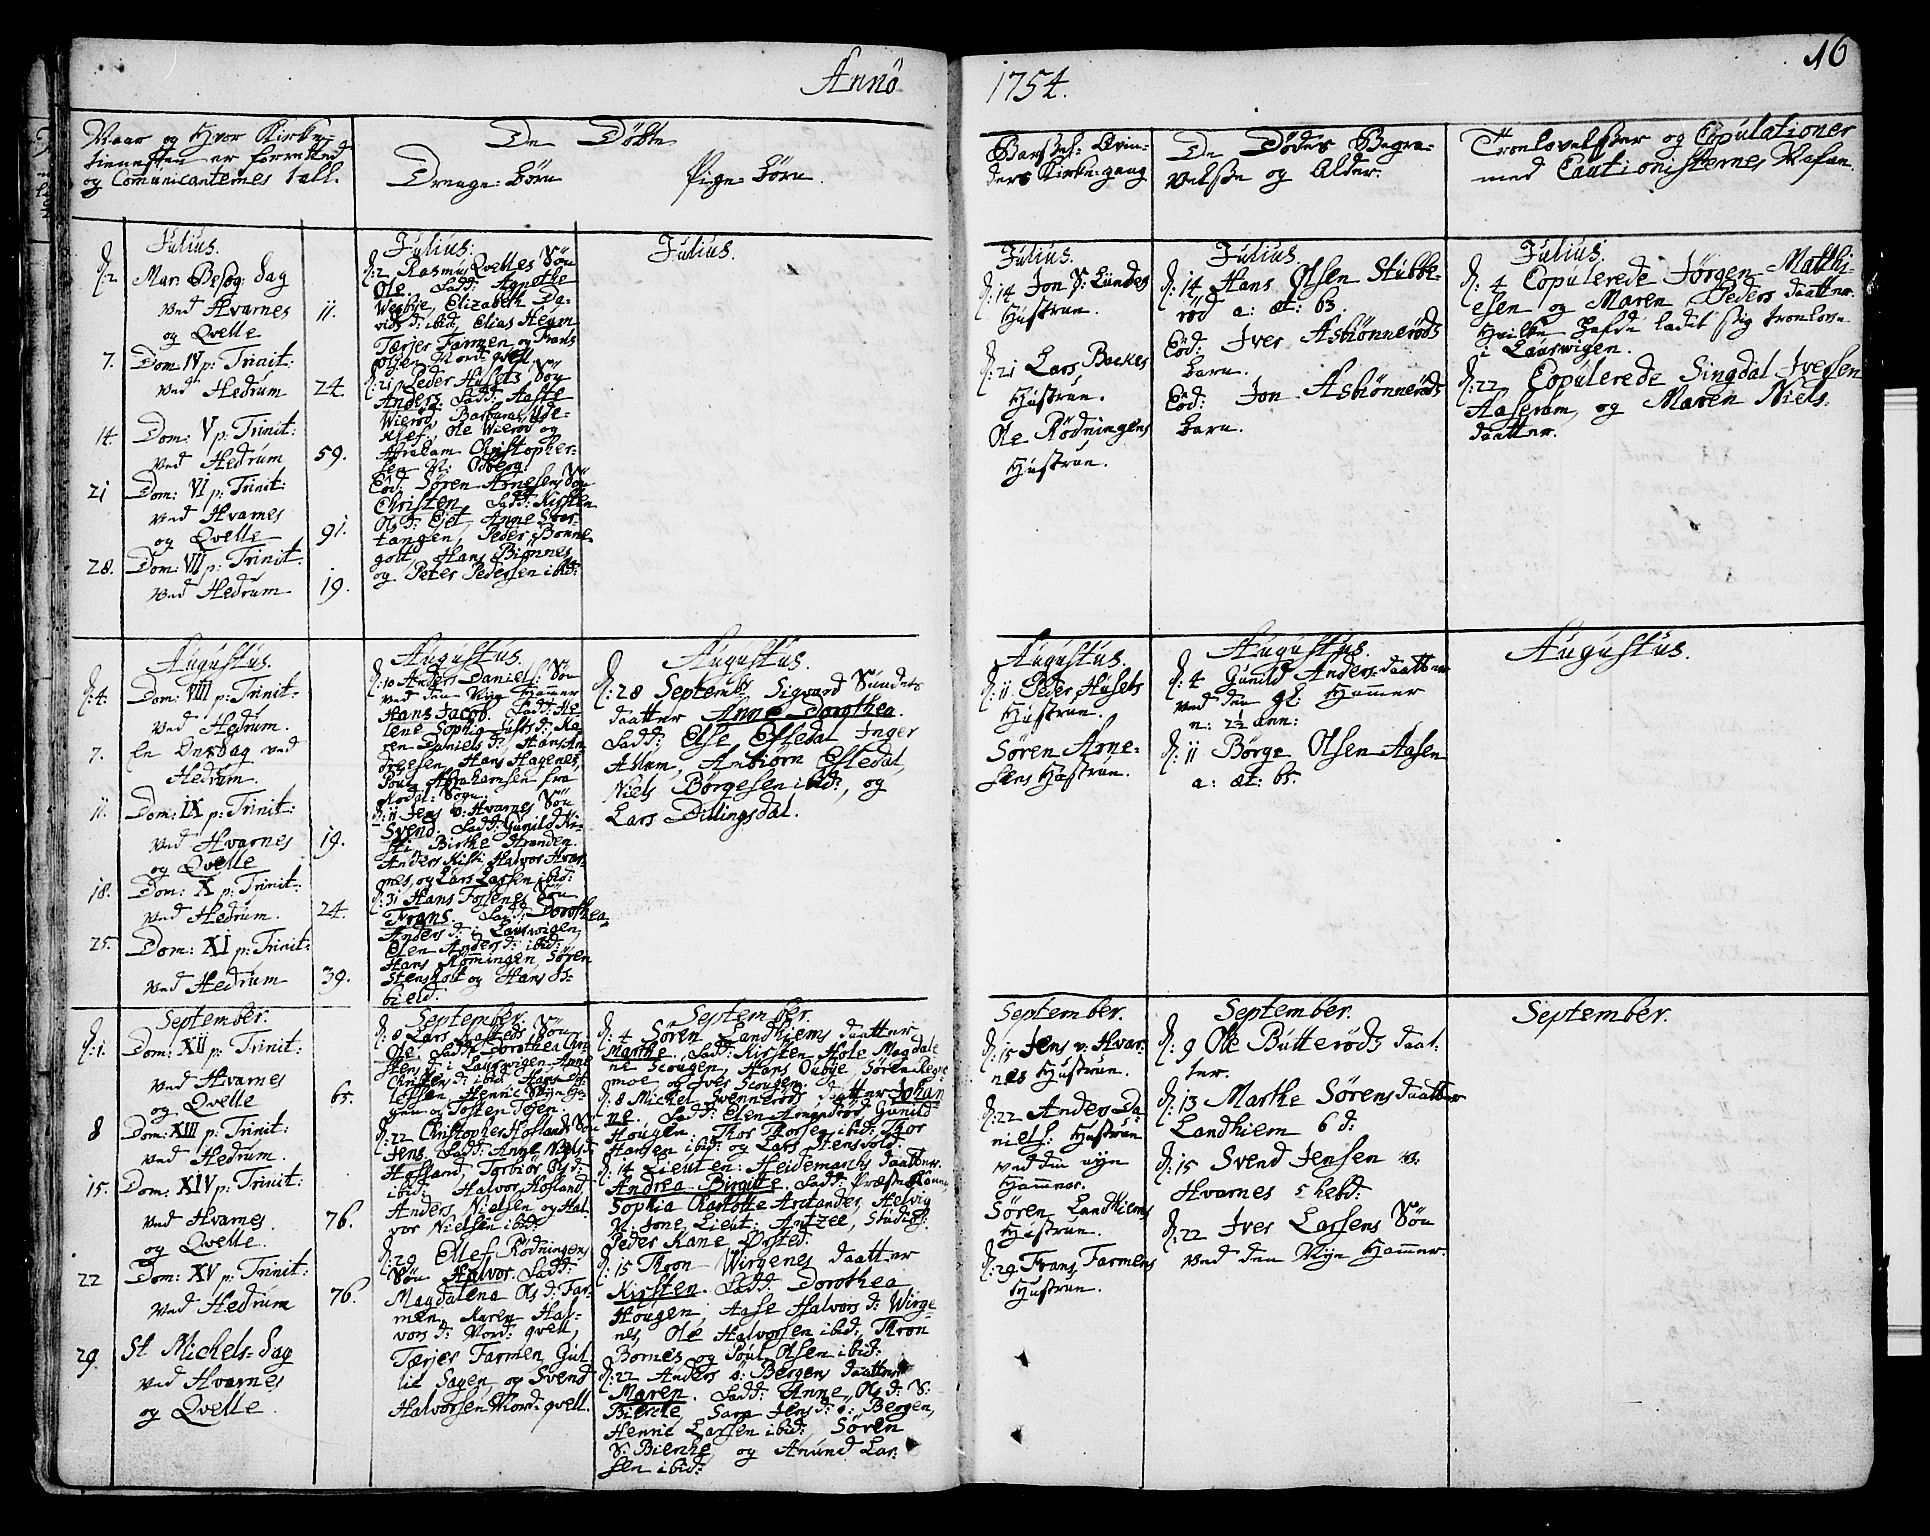 Annô
1754.
16
Naar og Hvor Kirke-
tienesten er forrettet
og Communicanternes tall.
De Döbte
Drenge-börn
Pige-börn
Barsel-Qvin-
ders Kirke-gang
De Dödes Begra-
velsse og Alder.
Troelovelsser og Copulationer
med Cautionisternes Nafne.
Julius.
d: 2 Mar: Besög: dag
ved Hvarnes
og Qvelle 11.
7. Dom IV p: Trinit:
ved Hedrum 24.
14. Dom: V p: Trinit:
ved Hedrum 59.
21 Dom: VI p: Trinit:
ved Hvarnes
og Qvelle 91.
28. Dom: VII p: Trinit:
ved Hedrum 19.
Julius.
d: 2 Rasmus Qvelles Sön
Ole. Fadd: Agnethe
Vegbye, Elizabeth Da-
vids d: ibid, Elias Hegen
Tærjer Farmen og Frans
Nord: qvell.
d: 21 Peder Husets Sön
Anders. Fadd: Aaste
Wieröd, Barbara
Ole Wieröd og
Abraham Christopher-
sen N: Odberg.
Eod: Sören Arnesens Sön
Christen. Fadd: Kirsten
Ols d: Anne
tangen, Peder Bonne-
golt, Hans Biönnes,
og Peter Pedersen ibid:
Julius.
Julius.
d: 14 Jon S: Lundes
Hustrue.
d: 21 Lars Backes
Hustrue.
Ole Rödningens
Hustrue.
Julius.
d: 14 Hans Olsen Stubbe-
röd a: æt: 63.
Eod: Iver Asbiönneröds
barn.
Eod: Jon Asbiönneröds
barn.
Julius.
d: 4 Copulerede Jörgen Matthi-
esen og Maren Peders daatter.
Hvilke hafde ladet sig troelove
i Laurwigen.
d: 22 Copulerede Singdal Iversen
Aaserum, og Maren Niels-
daatter.
Augustus.
d: 4. Dom: VIII p: Trinit-
ved Hedrum.
7. En Onsdag ved
Hedrum.
11. Dom: IX p: Trinit:
ved Hvarnes
og Qvelle 19.
18. Dom: X p: Trinit:
ved Hedrum. 24.
25. Dom: XI p: Trinit:
ved Hedrum 39.
Augustus.
d: 10 Anders Daniels: Sön
ved den Nye Hammer
Hans Jacob. Fadd: He-
lene Sophia d: Ka-
ren Daniels d:, Hans An-
dreesen, Hans Hagenes,
Poul Abrahamsen fra
Sogn.
d: 11 Jens v: Hvarnes Sön
Svend. Fadd: Gunild Ki-
sti, Birthe Stranden.
Anders Kisti Halvor Hvar-
nes, og Lars Larsen ibid:
d: 31 Hans Fossenes Sön
Frans. Fadd: Dorothea
Anders d: i Laurwigen,
Elen Anders d: ibid:
Hans Römingen, Sören
Stensholt og Hans
bield.
Augustus.
d: 28 Septemb Sigvard Sundets
daatter Anne Dorothea.
Fadd: Else Efftedal Inger
Allum, Anbiörn Efftedal,
Niels Börgesen ibid:, og
Lars Dillingsdal.
Augustus.
d: 11 Peder Husets
Hustrue.
Sören Arne-
sens Hustrue.
Augustus.
d: 4 Gunild Anders daatter
ved den gl: Hammer
n: 2½ ann:
d: 11 Börge Olsen Aasen
a: æt: 65.
Augustus.
September.
d: 1. Dom: XII p: Trinit:
ved Hvarnes
og Qvelle 65.
8 Dom: XIII p: Trinit:
ved Hedrum.
15. Dom: XIV p: Trinit:
ved Hvarnes
og Qvelle. 76.
22 Dom: XV p: Trinit:
ved Hedrum 76.
29. St Michels-dag
ved Hvarnes
og Qvelle.
September.
d: 8 Lars Sön
Ole. Fadd: Dorothea
Hens d: i Laurwigen, Anne
Christens d: ibid Hans
Henric
og Tosten
d: 22 Christopher Hoflands Sön
Jens. Fadd: Anne Niels d:
Hofland, Torbiör Ols d:
ibid: Halvor Hofland,
Anders Nielsen og Hal-
vor Nielsen ibid:
d: 29 Ellef Rödningens
Sön Halvor. Fadd:
Magdalena Ols d: Far-
men, Karen Hal-
vors d: Nord: qvell,
Tærjer Farmen, Gul-
lic Sagen, og Svend
Halvorsen Nord: qvell.
September.
d: 4 Sören Landhiems daatter
Marthe. Fadd: Kirsten Hole Magdale
ne Scougen, Hans Oubye, Sören
moe og Iver Scougen.
d: 8 Michel Svenneröds daatter Johan
ne. Fadd: Elen Gunild
Hougen Thor Thorsen ibid: Thor
Hansen ibid: og Lars Stensvold.
d: 14 Lieuten: Heidemarks daatter.
Andrea Birgitte. Fadd:
Sophia Charlotte Arctander, Helvig
Lieut: Antzee, Studios:
Peder Kane Örsted.
d: 15 Thron Wirgenes daatter
Kirsten. Fadd: Dorothea
Hougen, Aase Halvors d: Wirge-
nes, Ole Halvorsen ibid, Thron
Bornes og Poul Olsen ibid:
d: 22 Anders ö: Bergens daatter
Maren. Fadd: Anne Ols d: S:
Biercke, Sara Jens d: ö: Bergen,
Henric Larsen ibid:, Sören
S: Biercke, og Anund Lar-
sen ibid:
September.
d: 15 Jens v: Hvar-
nes Hustrue.
d: 22 Anders Da-
niels: Hustrue
ved den nye
Hammer.
Sören Landhiems
Hustrue.
d: 29 Frans Farmens
Hustrue.
September.
d: 9 Ole Butteröds daat-
ter.
d: 13 Marthe Sörens daatter
Landhiem 6 d:
d: 15 Svend Jensen v:
Hvarnes 5 hebd:
d: 22 Iver Larsens Sön
ved den Nye Hammer.
September.